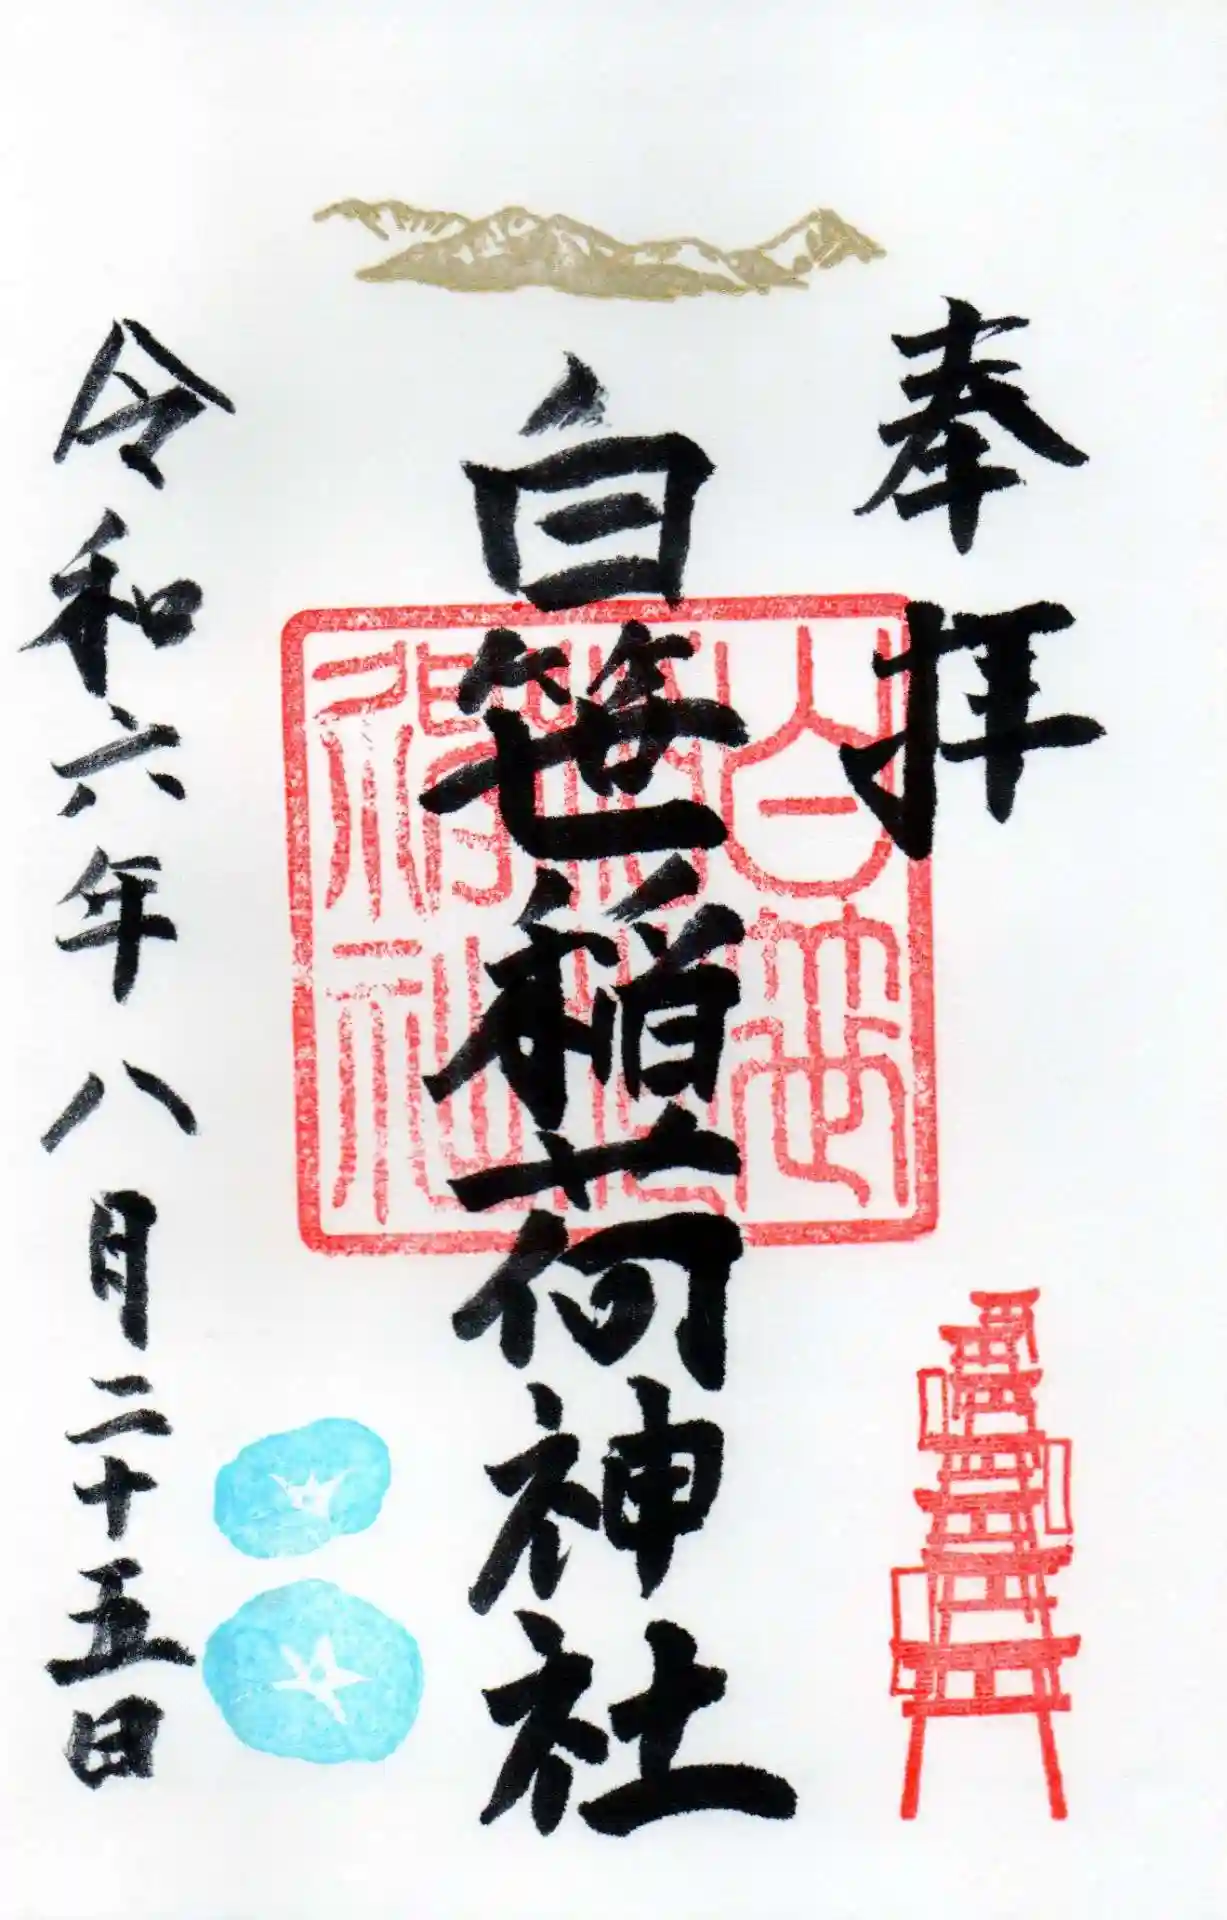 奉拝
白笹稲荷神社
令和六年八月二十五日